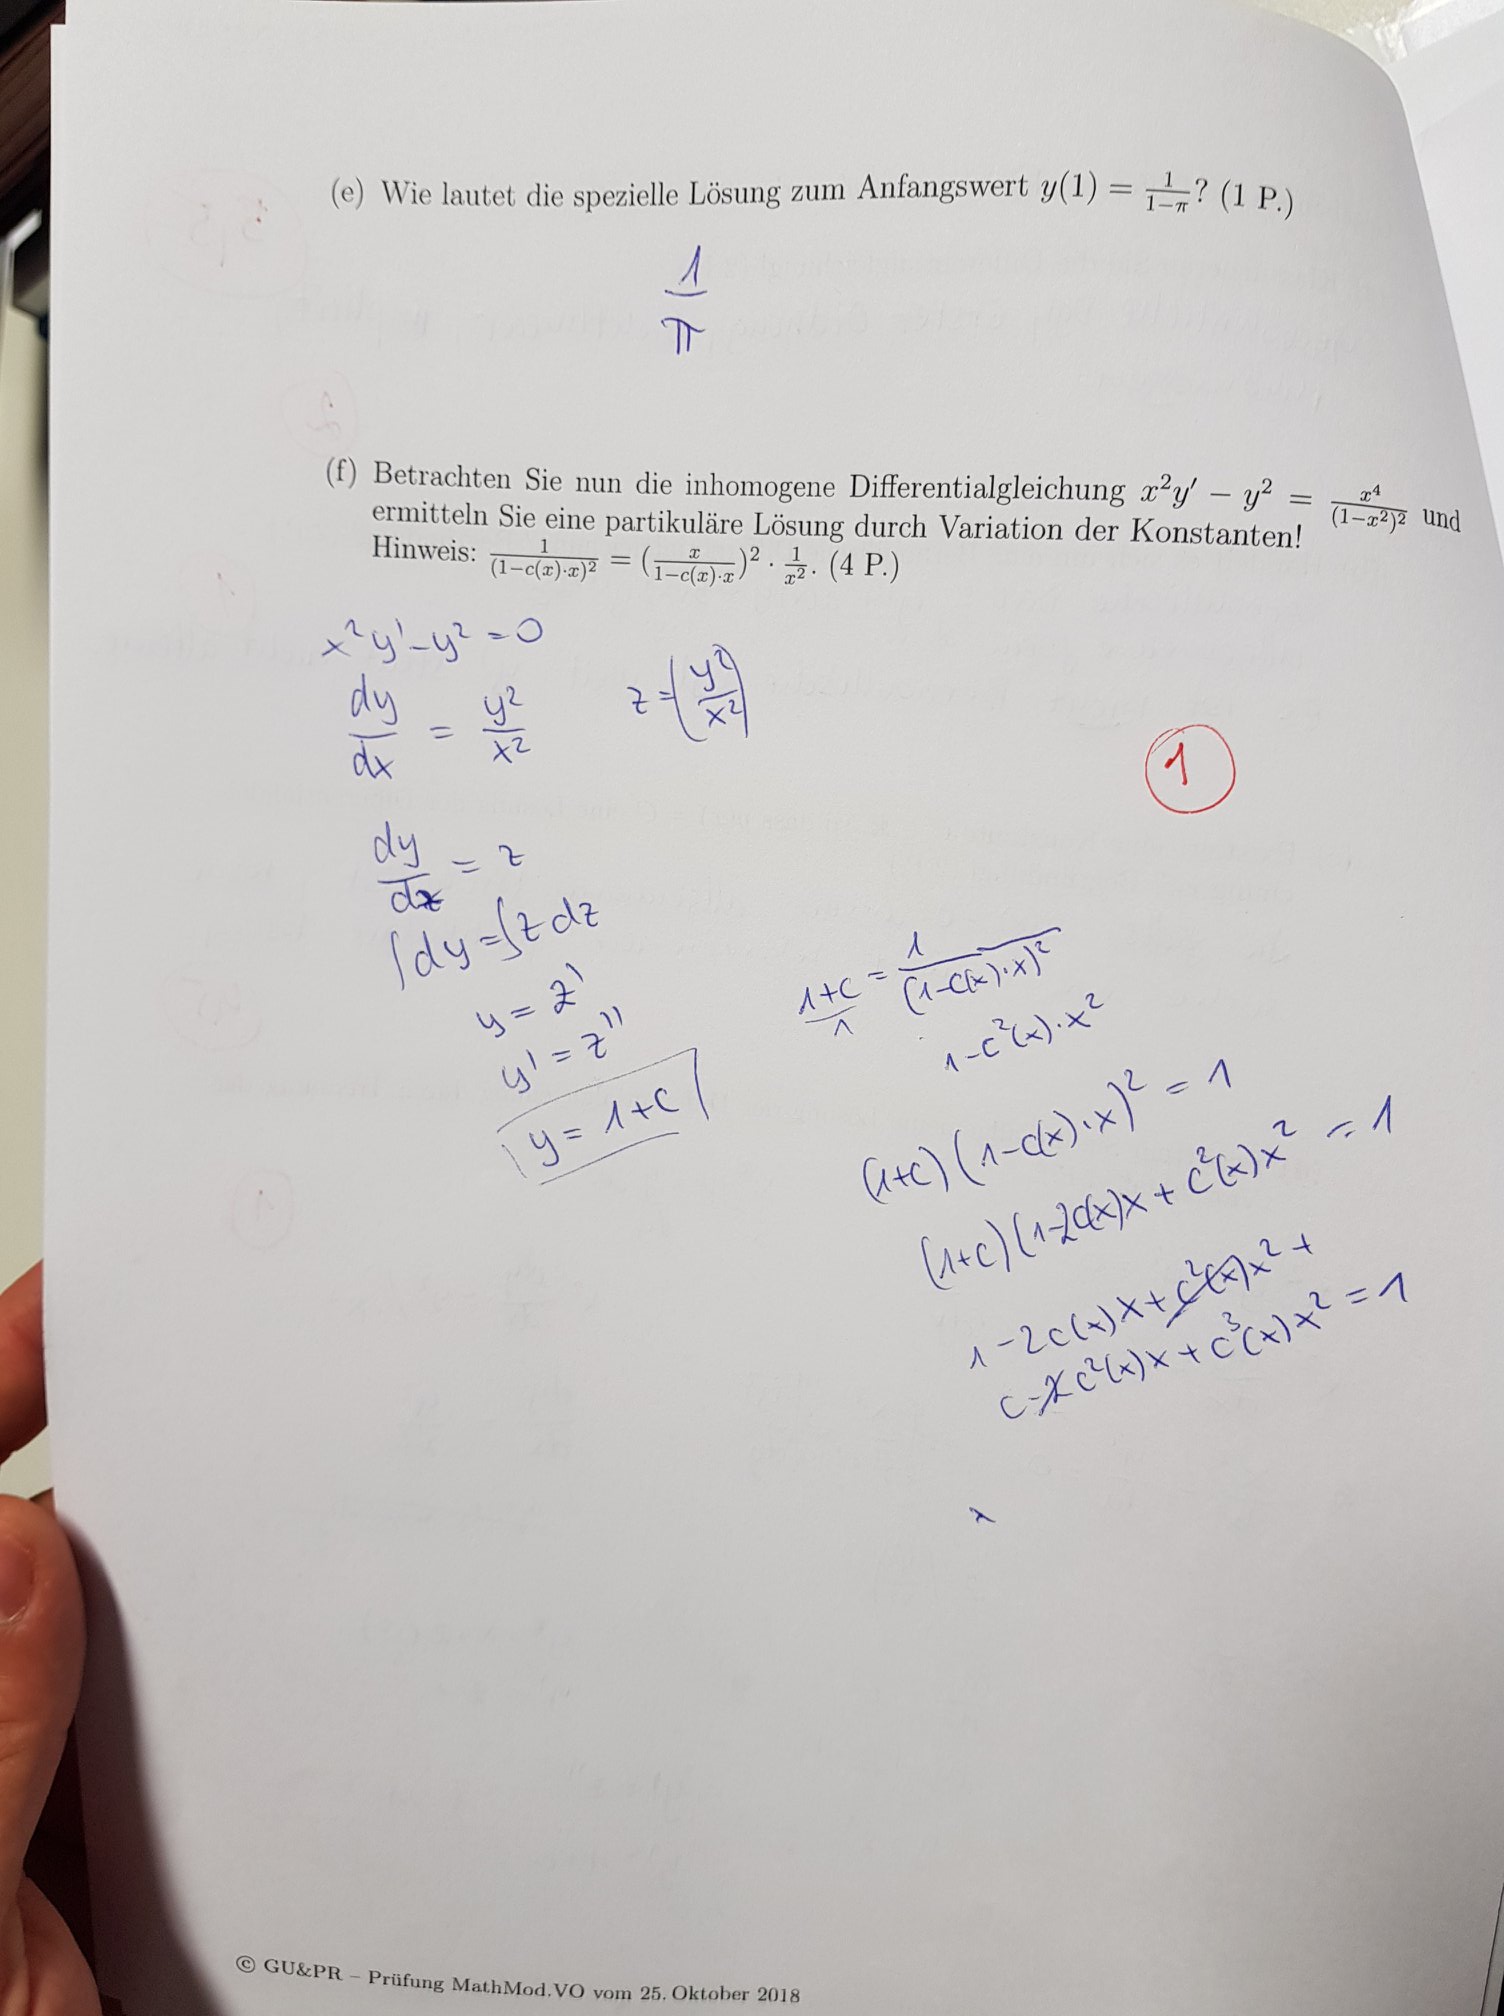 (e) Wie lautet die spezielle Lösung zum Anfangswert y(1) = 1/(1−π)? (1 P.)
1/π
(f) Betrachten Sie nun die inhomogene Differentialgleichung x²y′ − y² = x⁴/(1−x²)² und
ermitteln Sie eine partikuläre Lösung durch Variation der Konstanten!
Hinweis: 1/(1−c(x)·x)² = (x/(1−c(x)·x))² · 1/x². (4 P.)
x²y' − y² = 0
dy/dx = y²/x²
z = (y²/x²)
1
dy/dz = z
∫dy = ∫z dz
y = z'
y' = z''
y = 1+c
(1+c)/1 = 1/(1−c(x)·x)²
1−c²(x)·x²
(1+c)(1−c(x)·x)² = 1
(1+c)(1−2c(x)x + c²(x)x² = 1
1−2c(x)x + c²(x)x² +
c−2c²(x)x + c³(x)x² = 1
x
© GU&PR – Prüfung MathMod.VO vom 25. Oktober 2018